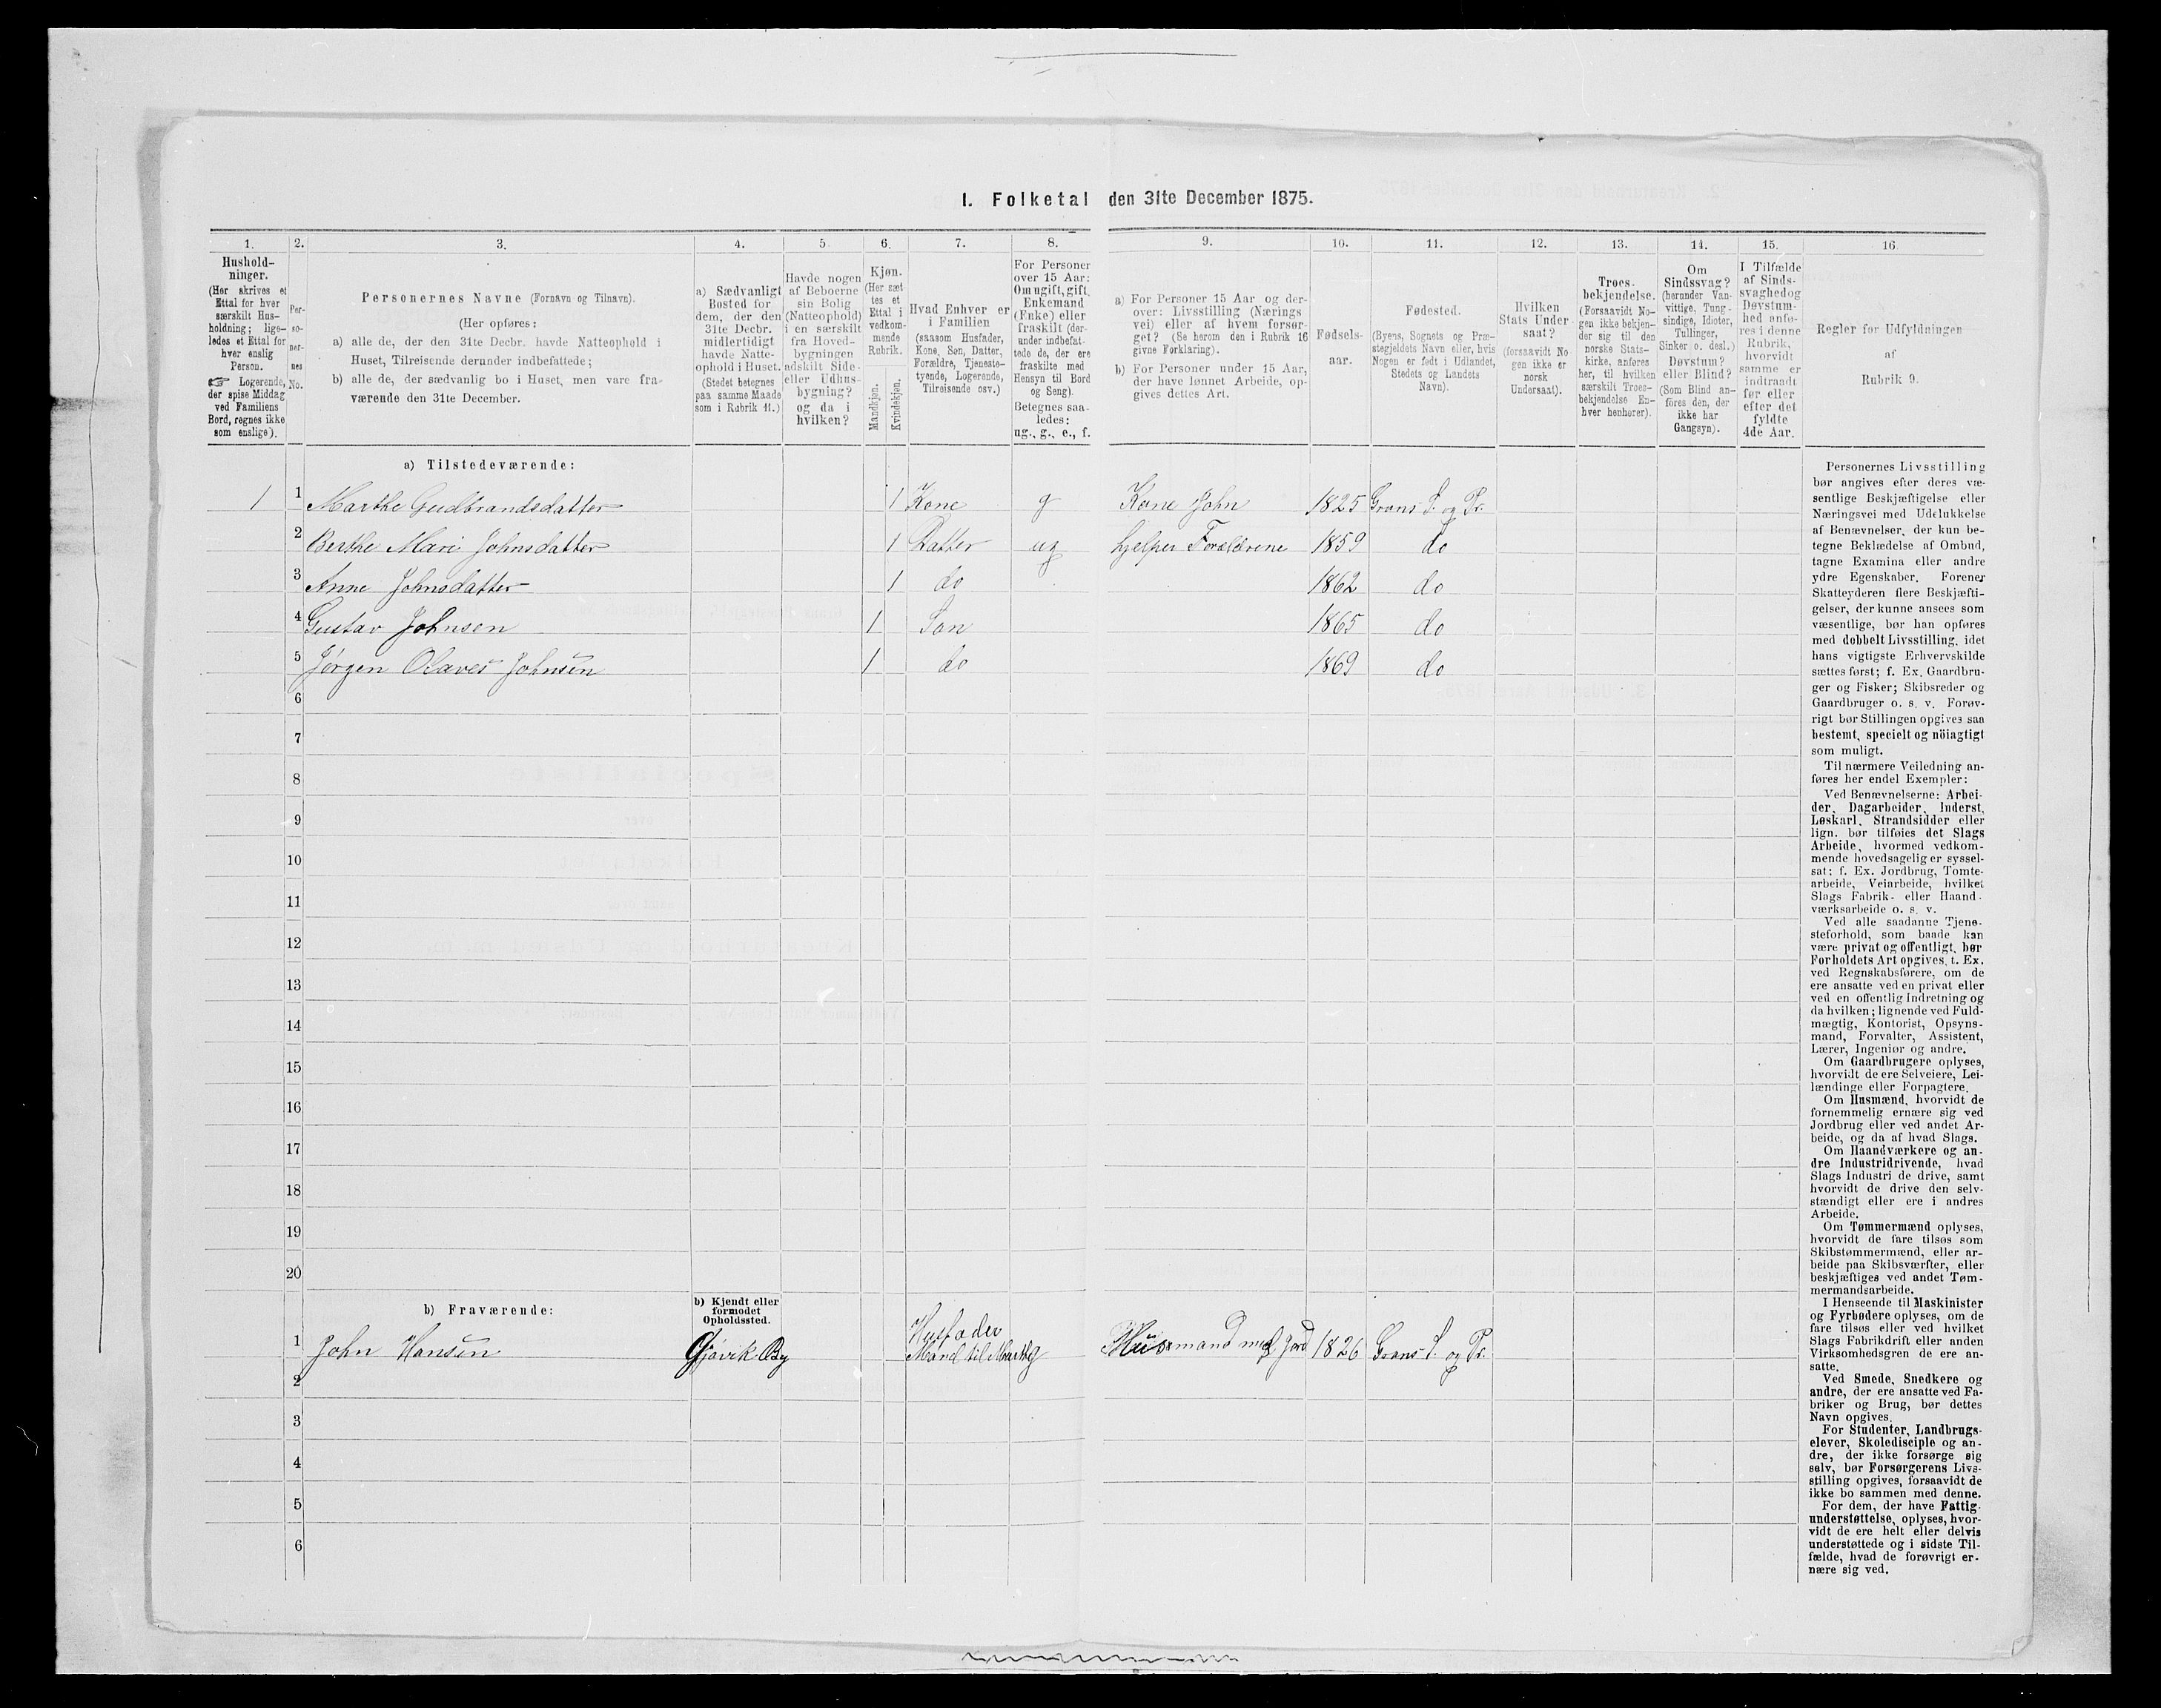 1. Folketal den 31te December 1875.
1. 2. 3. 4. 5. 6. 7. 8. 9. 10. 11. 12. 13. 14. 15. 16
Hushold-
ninger.
(Her skrives et
Ettal for hver
særskilt Hus-
holdning; lige-
ledes et Ettal for
hver enslig
Person.
☞ Logerende,
der spise Middag
ved Familiens
Bord, regnes ikke
som enslige).
Per-
so-
ner-
nes
No.
Personernes Navne (Fornavn og Tilnavn).
(Her opføres:
a) alle de, der den 31te Decbr. havde Natteophold i
Huset, Tilreisende derunder indbefattede;
b) alle de, der sædvanlig bo i Huset, men vare fra-
værende den 31te December.
a) Sædvanligt
Bosted for
dem, der den
31te Decbr.
midlertidigt
havde Natte-
ophold i Huset.
(Stedet betegnes
paa samme Maade
som i Rubrik 11.)
Havde nogen
af Beboerne
sin Bolig
(Natteophold)
i en særskilt
fra Hoved-
bygningen
adskilt Side-
eller Udhus-
bygning?
og da i
hvilken?
Kjøn.
(Her sæt-
tes et
Ettal i
vedkom-
mende
Rubrik.
Mandkjøn.
Kvindekjøn.
Hvad Enhver er
i Familien
(saasom Husfader,
Kone, Søn, Datter,
Forældre, Tjeneste-
tyende, Logerende,
Tilreisende osv.)
For Personer
over 15 Aar:
Om ugift, gift,
Enkemand
(Enke) eller
fraskilt (der-
under indbefat-
tede de, der ere
fraskilte med
Hensyn til Bord
og Seng).
Betegnes saa-
ledes:
ug., g., e., f.
a) For Personer 15 Aar og der-
over: Livsstilling (Nærings
vei) eller af hvem forsør-
get? (Se herom den i Rubrik 16
givne Forklaring).
b) For Personer under 15 Aar,
der have lønnet Arbeide, op-
gives dettes Art.
Fødsels-
aar.
Fødested.
(Byens, Sognets og Præ-
stegjeldets Navn eller, hvis
Nogen er født i Udlandet,
Stedets og Landets
Navn).
Hvilken
Stats Under-
saat?
(forsaavidt No-
gen ikke er
norsk
Undersaat).
Troes-
bekjendelse.
(Forsaavidt No-
gen ikke bekjen-
der sig til den
norske Stats-
kirke, anføres
her, til hvilken
særskilt Troes-
bekjendelse En-
hver henhører).
Om
Sindssvag?
(herunder Van-
vittige, Tung-
sindige, Idioter,
Tullinger,
Sinker o. desl.)
Døvstum?
eller Blind?
(Som Blind an-
føres den, der
ikke har
Gangsyn).
I Tilfælde
af Sinds-
svaghed og
Døvstum-
hed anfø-
res i denne
Rubrik,
hvorvidt
samme er
indtraadt
før eller
efter det
fyldte
4de Aar.
Regler for Udfyldningen
af
Rubrik 9.
a) Tilstedeværende:
1 1 Marthe Gudbrandsdatter 1 Kone g Kone John 1825 Grans S. og Pr.
2 Berthe Mari Johnsdatter 1 Datter ug hjelper Forældrene 1859 do
3 Anne Johnsdatter 1 do 1862 do
4 Gustav Johnsen 1 Søn 1865 do
5 Jørgen Olaves Johnsen 1 do 1869 do
6
7
8
9
10
11
12
13
14
15
16
17
18
19
20
b) Fraværende:
b) Kjendt eller
formodet
Opholdssted.
Husfader
1 John Hansen Gjøvik By Mand til Marthe Husmand med Jord 1826 Grans S. og Pr.
2
3
4
5
6
Personernes Livsstilling
bør angives efter deres væ-
sentlige Beskjæftigelse eller
Næringsvei med Udelukkelse
af Benævnelser, der kun be-
tegne Beklædelse af Ombud,
tagne Examina eller andre
ydre Egenskaber. Forener
Skatteyderen flere Beskjæfti-
gelser, der kunne ansees som
væsentlige, bør han opføres
med dobbelt Livsstilling, idet
hans vigtigste Erhvervskilde
sættes først; f. Ex. Gaardbru-
ger og Fisker; Skibsreder og
Gaardbruger o. s. v. Forøv-
rigt bør Stillingen opgives saa
bestemt, specielt og nöiagtigt
som muligt.
Til nærmere Veiledning an-
føres her endel Exempler:
Ved Benævnelserne: Arbei-
der, Dagarbeider, Inderst,
Løskarl, Strandsidder eller
lign. bør tilføies det Slags
Arbeide, hvormed vedkom-
mende hovedsagelig er syssel-
sat; f. Ex. Jordbrug, Tomte-
arbeide, Veiarbeide, hvilket
Slags Fabrik- eller Haand-
værksarbeide o. s. v.
Ved alle saadanne Tjene-
steforhold, som baade kan
være privat og offentligt, bør
Forholdets Art opgives, t. Ex.
ved Regnskabsførere, om de
ere ansatte ved en privat eller
ved en offentlig Indretning og
da hvilken; lignende ved Fuld-
mægtig, Kontorist, Opsyns-
mand, Forvalter, Assistent,
Lærer, Ingeniør og andre.
Om Gaardbrugere oplyses,
hvorvidt de ere Selveiere, Lei-
lændinge eller Forpagtere.
Om Husmænd, hvorvidt de
fornemmelig ernære sig ved
Jordbrug eller ved andet Ar-
beide, og da af hvad Slags.
Om Haandværkere og an-
dre Industridrivende, hvad
Slags Industri de drive, samt
hvorvidt de drive den selv-
stændigt eller ere i andres
Arbeide.
Om Tømmermænd oplyses,
hvorvidt de fare tilsøs som
Skibstømmermænd, eller ar-
beide paa Skibsværfter, eller
beskjæftiges ved andet Tøm-
mermandsarbeide.
I Henseende til Maskinister
og Fyrbødere oplyses, om de
fare tilsøs eller ved hvilket
Slags Fabrikdrift eller anden
Virksomhedsgren de ere an-
satte.
Ved Smede, Snedkere og
andre, der ere ansatte ved Fa-
briker og Brug, bør dettes
Navn opgives.
For Studenter, Landbrugs-
elever, Skoledisciple og an-
dre, der ikke forsørge sig
selv, bør Forsørgerens Livs-
stilling opgives, forsaavidt de
ikke bo sammen med denne.
For dem, der have Fattig-
understøttelse, oplyses, hvor-
vidt de ere helt eller delvis
understøttede og i sidste Til-
fælde, hvad de forøvrigt er-
nære sig ved.